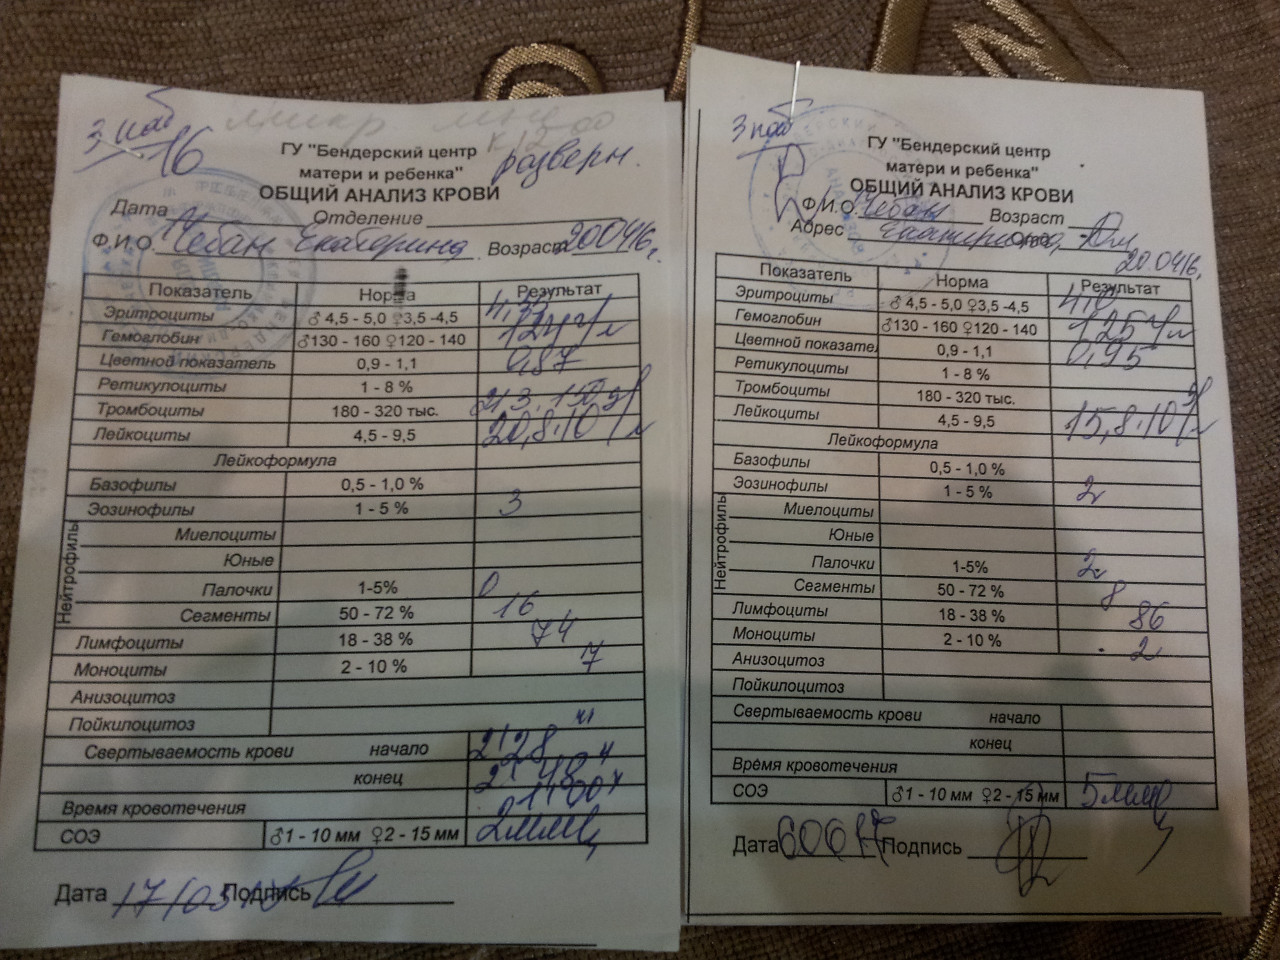 3 наб
16
К 12 00
разверн.
ГУ "Бендерский центр
матери и ребенка"
ОБЩИЙ АНАЛИЗ КРОВИ
Дата Отделение
Ф.И.О. Чебан Екатерина Возраст 20.04.16г.
Показатель Норма Результат
Эритроциты ♂ 4,5 - 5,0 ♀3,5 -4,5
Гемоглобин ♂130 - 160 ♀120 - 140 124 г/л
Цветной показатель 0,9 - 1,1 0,87
Ретикулоциты 1 - 8 %
Тромбоциты 180 - 320 тыс.
Лейкоциты 4,5 - 9,5 20,8·10⁹/л
Лейкоформула
Базофилы 0,5 - 1,0 %
Эозинофилы 1 - 5 % 3
Нейтрофиль
Миелоциты
Юные
Палочки 1-5% 0
Сегменты 50 - 72 % 16
Лимфоциты 18 - 38 % 74
Моноциты 2 - 10 % 7
Анизоцитоз
Пойкилоцитоз
Свертываемость крови начало 2'28"
конец 2'48"
Время кровотечения 1'00"
СОЭ ♂1 - 10 мм ♀2 - 15 мм 2мм/ч
Дата 17/05 Подпись
3 наб
ГУ "Бендерский центр
матери и ребенка"
ОБЩИЙ АНАЛИЗ КРОВИ
Ф.И.О. Чебан Возраст
Адрес Екатерина
20.04.16.
Показатель Норма Результат
Эритроциты ♂ 4,5 - 5,0 ♀3,5 -4,5 4,0
Гемоглобин ♂130 - 160 ♀120 - 140 125 г/л
Цветной показател 0,9 - 1,1 0,95
Ретикулоциты 1 - 8 %
Тромбоциты 180 - 320 тыс.
Лейкоциты 4,5 - 9,5 15,8·10⁹/л
Лейкоформула
Базофилы 0,5 - 1,0 %
Эозинофилы 1 - 5 % 2
Нейтрофиль
Миелоциты
Юные
Палочки 1-5% 2
Сегменты 50 - 72 % 8
Лимфоциты 18 - 38 % 86
Моноциты 2 - 10 % 2
Анизоцитоз
Пойкилоцитоз
Свертываемость крови начало
конец
Время кровотечения
СОЭ ♂1 - 10 мм ♀2 - 15 мм 5мм/ч
Дата 60617 Подпись